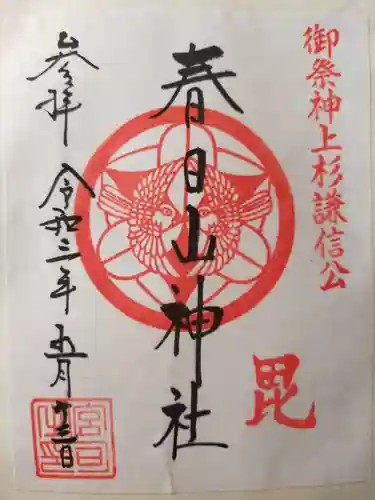 御祭神上杉謙信公
毘
春日山神社
参拝
令和三年五月十三日